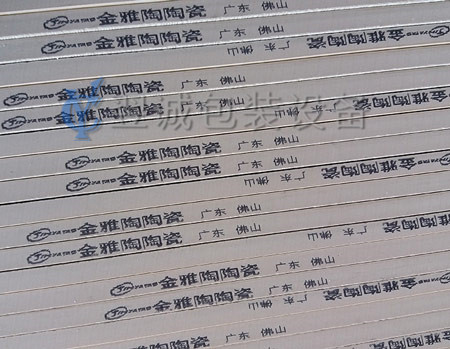 金雅陶陶瓷 广东 佛山
金雅陶陶瓷 广东 佛山 金雅陶陶瓷
金雅陶陶瓷 广东 佛山
金雅陶陶瓷 广东 佛山 金雅陶陶瓷
亚诚包装设备
金雅陶陶瓷 广东 佛山
金雅陶陶瓷 广东 佛山 金雅陶陶瓷
金雅陶陶瓷 广东 佛山
金雅陶陶瓷 广东 佛山 金雅陶陶瓷
金雅陶陶瓷 广东 佛山
金雅陶陶瓷 广东 佛山 金雅陶陶瓷
金雅陶陶瓷 广东 佛山